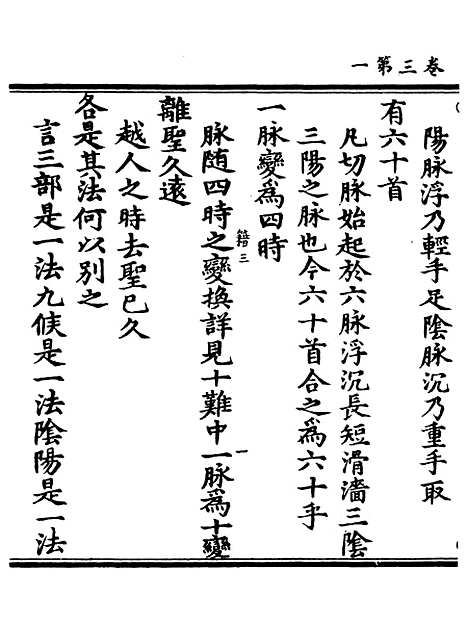 卷三第一
陽脉浮乃輕手足陰脉沉乃重手取
有六十首
凡切脉始起於六脉浮沉長短滑濇三陰
三陽之脉也今六十首合之爲六十乎
一脉變爲四時
籍三
脉隨四時之變換詳見十難中一脉爲十變
離聖久遠
越人之時去聖已久
各是其法何以别之
言三部是一法九候是一法陰陽是一法
一